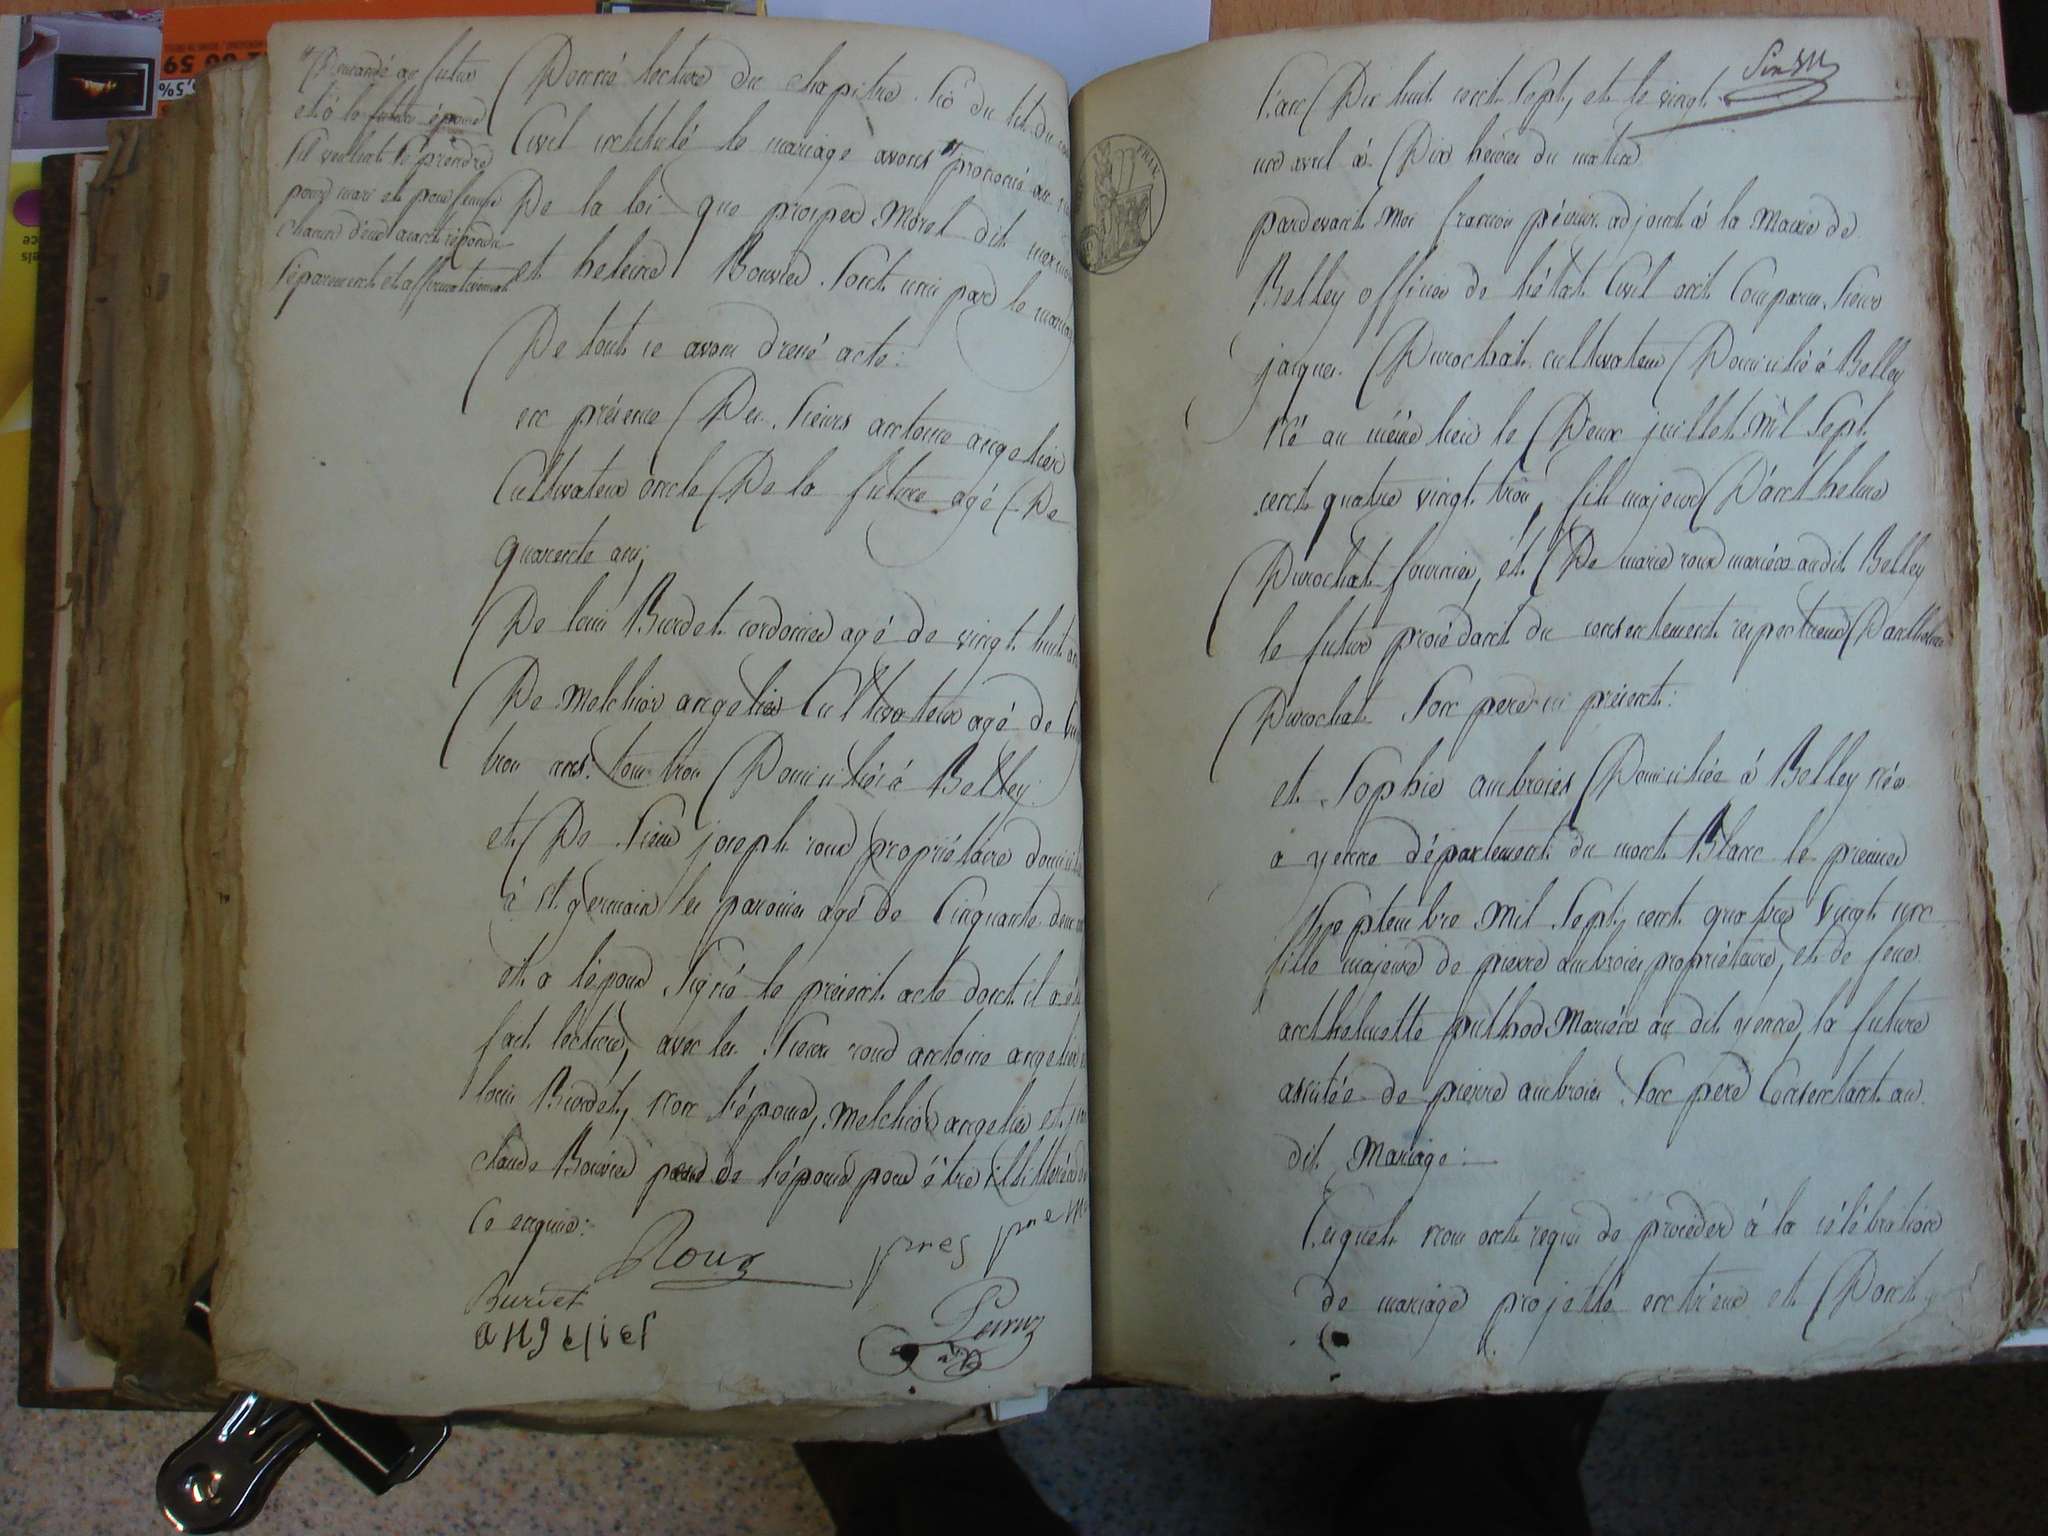 Demandé au futur
et à la future épouse
S'il veulent se prendre
pour mari et pour femme
chacun d'eux ayant répondu
Séparément et affirmativement
Donné lecture du chapitre Six du tit. du
Civil intitulé le mariage avons prononcé au
De la loi que prosper Morel dit
et heleine Bouvier Sont unis par le mariag
De tout ce avons dressé acte:
en présence Des Sieurs antoine angelier
Cultivateur oncle De la future agé De
quarente ans,
De louis Burdet cordonier agé de vingt huit ans
De Melchior angelier Cultivateur agé de
trois ans. tous trois Domiciliés à Belley:
et De Sieur joseph roux propriétaire domicilié
à St. germain les paroisses agé de Cinquante deux
et a l'époux Signé le présent acte dont il a été
fait lecture, avec les Sieurs roux antoine angelier
louis Burdet, non l'épouse, Melchior angelier et
claude Bouvier pere de l'épouse pour être illitérés de
Ce enquis:
Roux
Burdet
angelier
59
5%
L'an Dix huit cent Sept, et le vingt
un avril à Dix heures du matin
pardevant Moi francois adjoint à la Mairie de
Belley officier de l'état Civil ont Comparu Sieur
jacques Durochat cultivateur Domicilié à Belley
Né au même lieu le Deux juillet Mil Sept
cent quatre vingt trois, fils majeur D'anthelme
Durochat fournier, et De marie roux mariés audit Belley
le futur procédant du consentement respectueux D'anthelme
Durochat Son pere ici présent:
et Sophie ambroies Domiciliée à Belley Née
a yenne département du mont Blanc le premier
Septembre Mil Sept cent quatre Vingt un
fille majeure de pierre ambrois propriétaire, et de feue
anthelmette puthod Mariés au dit yenne, la future
assistée de pierre ambrois Son pere Consentant au
dit Mariage:
Lesquels nous ont requis de procéder à la célébration
de mariage projetté entr'eux et Dont